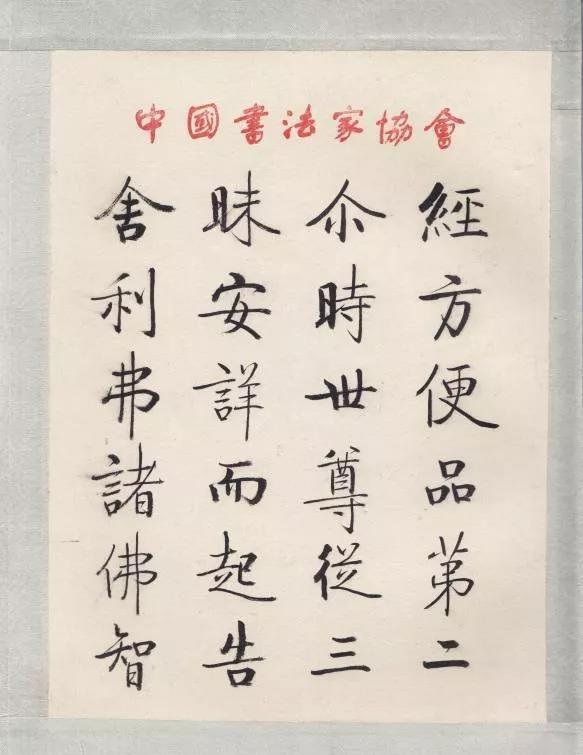 中國書法家協會
經方便品苐二
尒時世尊從三
昧安詳而起告
舍利弗諸佛智